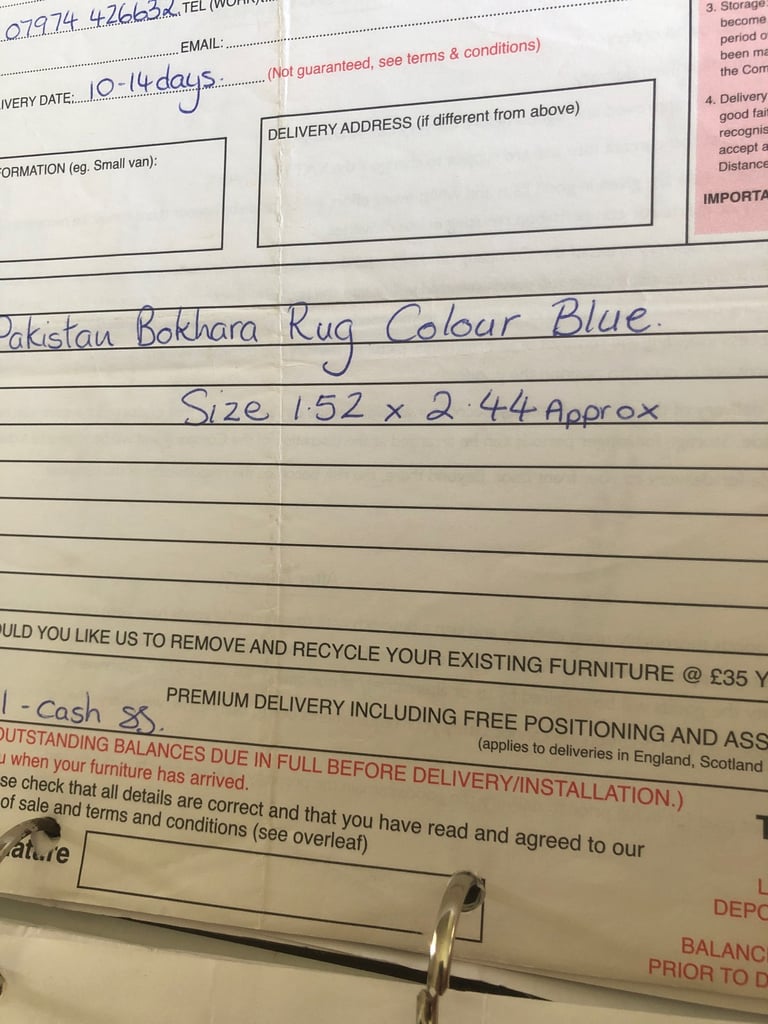 07974 426632 TEL (WORK)
EMAIL:
IVERY DATE: 10-14 days. (Not guaranteed, see terms & conditions)
DELIVERY ADDRESS (if different from above)
FORMATION (eg. Small van):
3. Storage
become
period o
been ma
the Com
4. Delivery
good fait
recognis
accept a
Distance
IMPORTA
Pakistan Bokhara Rug Colour Blue.
Size 1.52 x 2.44 Approx
OULD YOU LIKE US TO REMOVE AND RECYCLE YOUR EXISTING FURNITURE @ £35 Y
PREMIUM DELIVERY INCLUDING FREE POSITIONING AND ASS
(applies to deliveries in England, Scotland
- Cash
OUTSTANDING BALANCES DUE IN FULL BEFORE DELIVERY/INSTALLATION.)
u when your furniture has arrived.
se check that all details are correct and that you have read and agreed to our
of sale and terms and conditions (see overleaf)
ature
T
L
DEPO
BALANC
PRIOR TO D